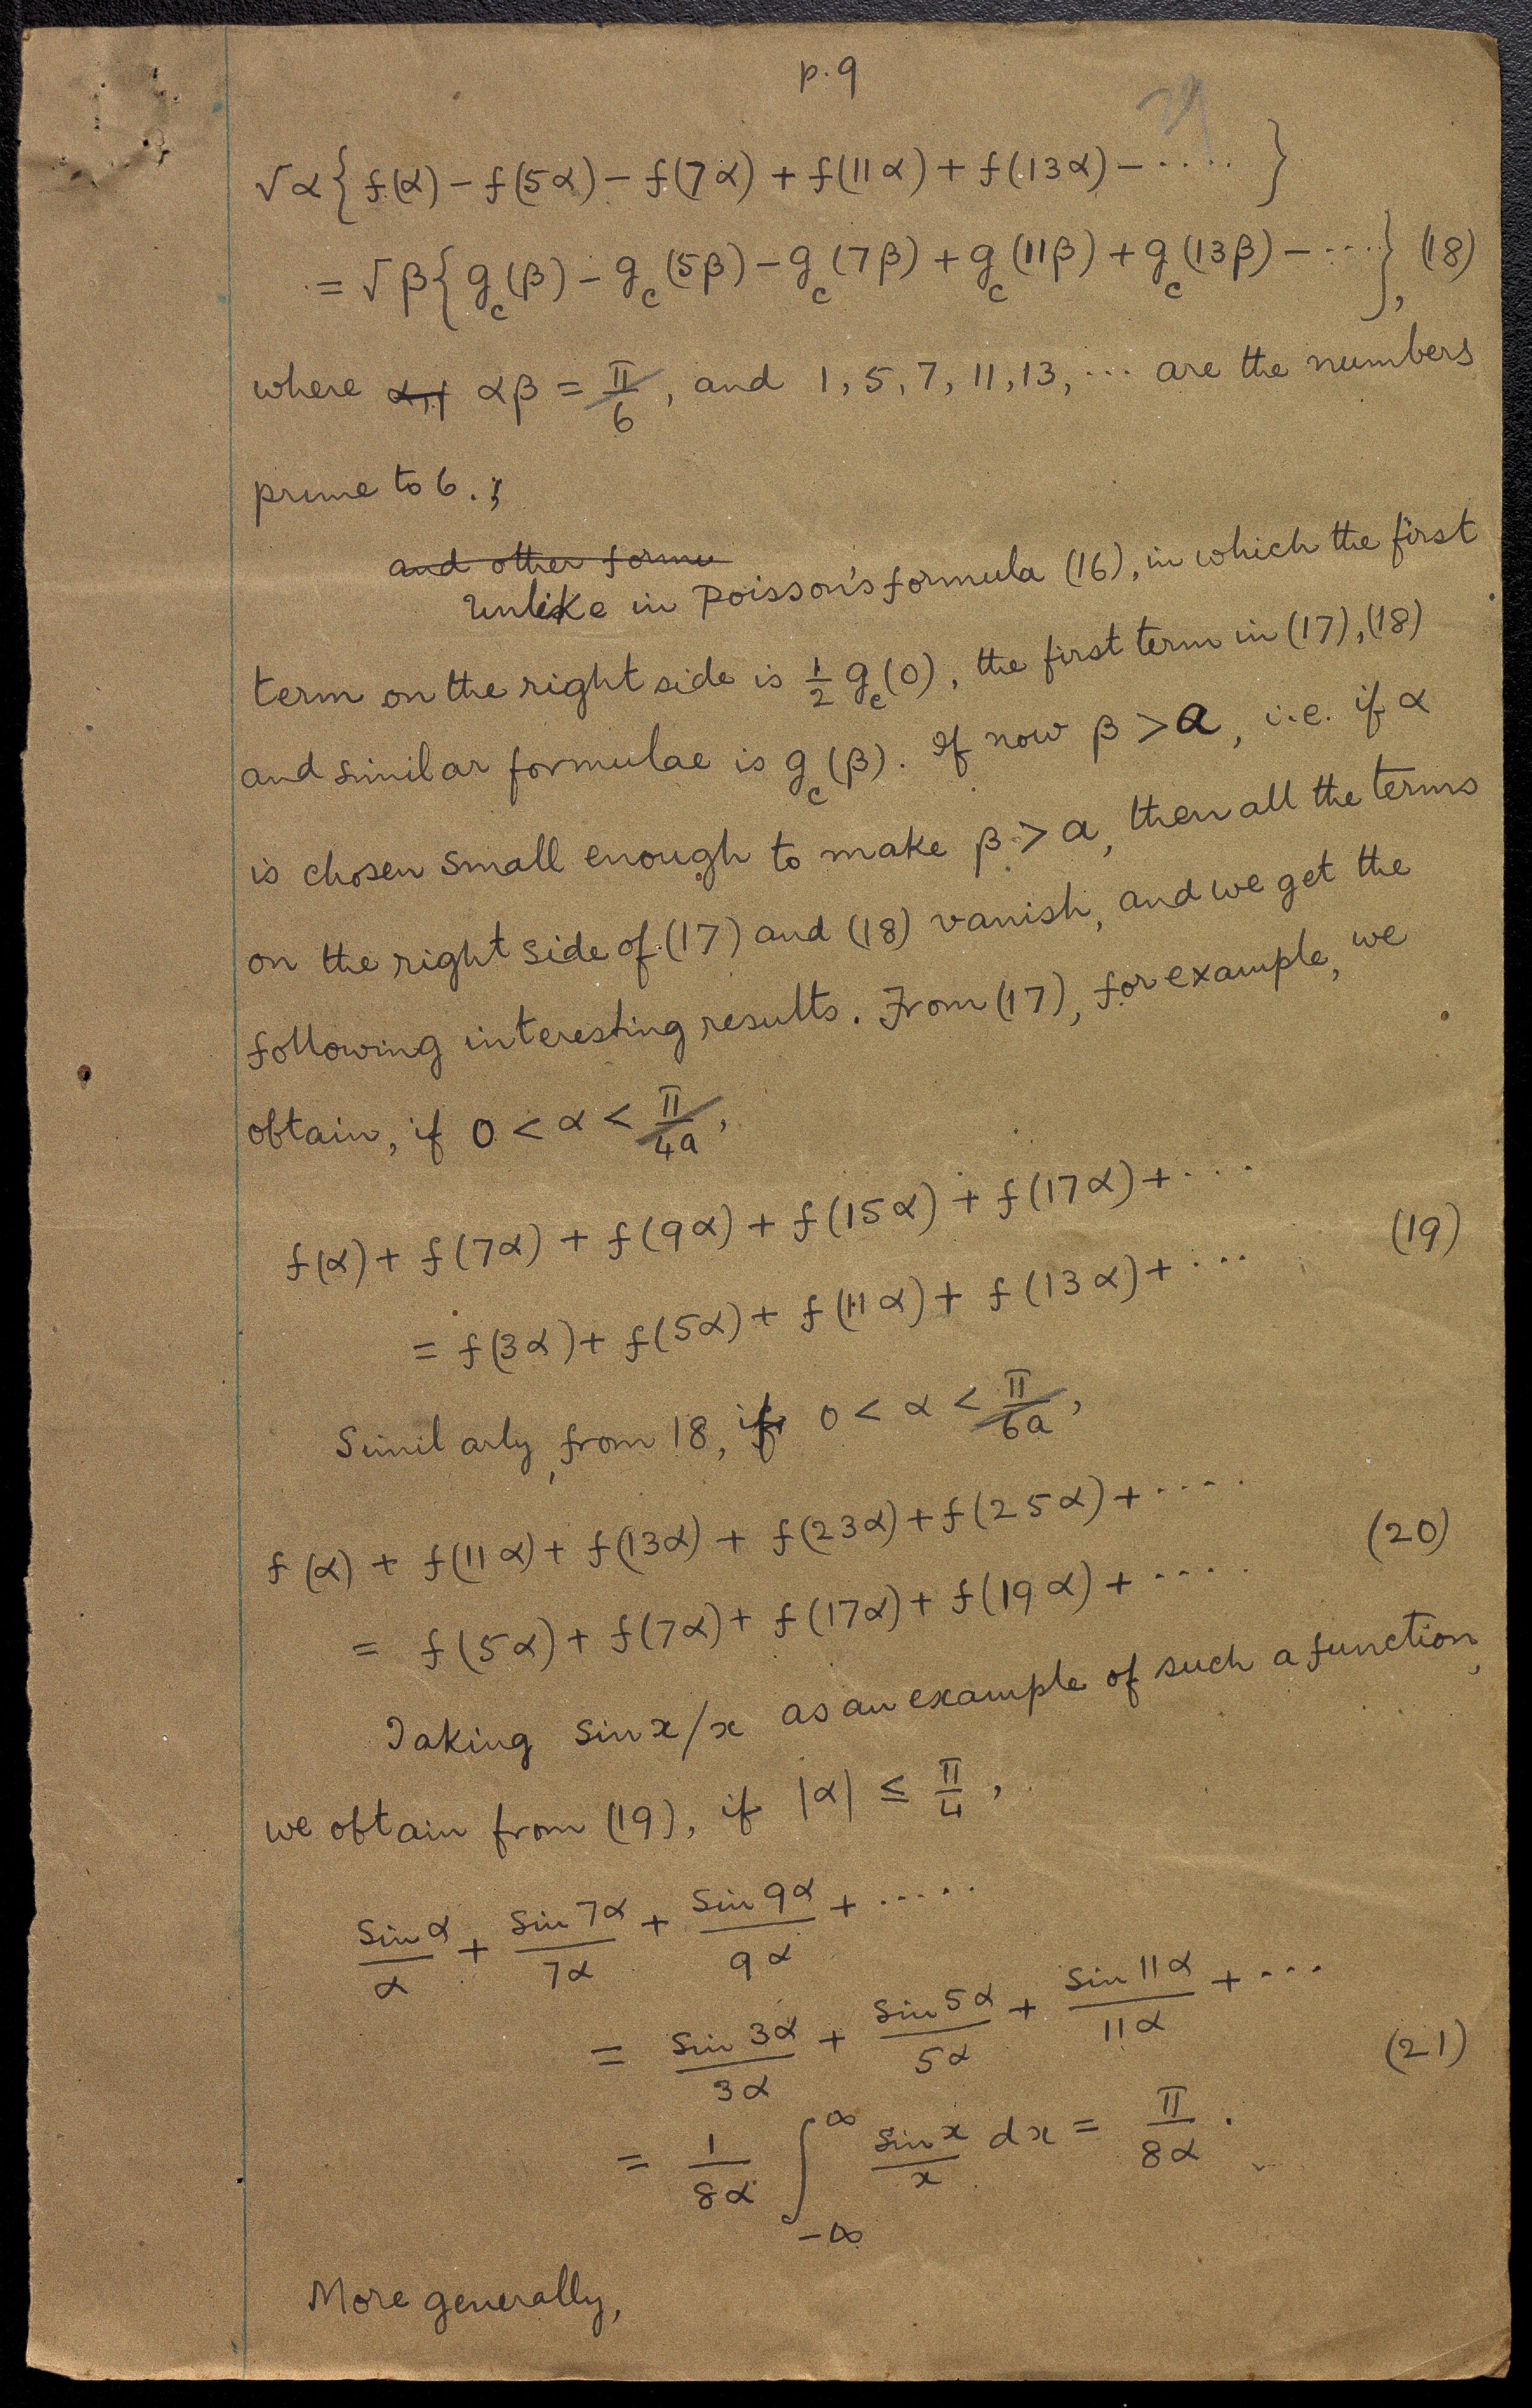 p. 9
29
√α{f(α) - f(5α) - f(7α) + f(11α) + f(13α) - ····· }
= √β{g_c(β) - g_c(5β) - g_c(7β) + g_c(11β) + g_c(13β) - ····}, (18)
where αβ = π/6, and 1, 5, 7, 11, 13, ··· are the numbers
prime to 6.
and other formu
Unlike in Poisson's formula (16), in which the first
term on the right side is 1/2 g_c(0), the first term in (17), (18)
and similar formulae is g_c(β). If now β > a, i.e. if α
is chosen small enough to make β > a, then all the terms
on the right side of (17) and (18) vanish, and we get the
following interesting results. From (17), for example, we
obtain, if 0 < α < π/4a,
f(α) + f(7α) + f(9α) + f(15α) + f(17α) + ····
(19)
= f(3α) + f(5α) + f(11α) + f(13α) + ····
Similarly, from 18, if 0 < α < π/6a,
f(α) + f(11α) + f(13α) + f(23α) + f(25α) + ·····
(20)
= f(5α) + f(7α) + f(17α) + f(19α) + ·····
Taking sin x/x as an example of such a function,
we obtain from (19), if |α| ≤ π/4,
sin α/α + sin 7α/7α + sin 9α/9α + ·····
= sin 3α/3α + sin 5α/5α + sin 11α/11α + ···
(21)
= 1/8α ∫_{-∞}^{∞} sin x/x dx = π/8α.
More generally,